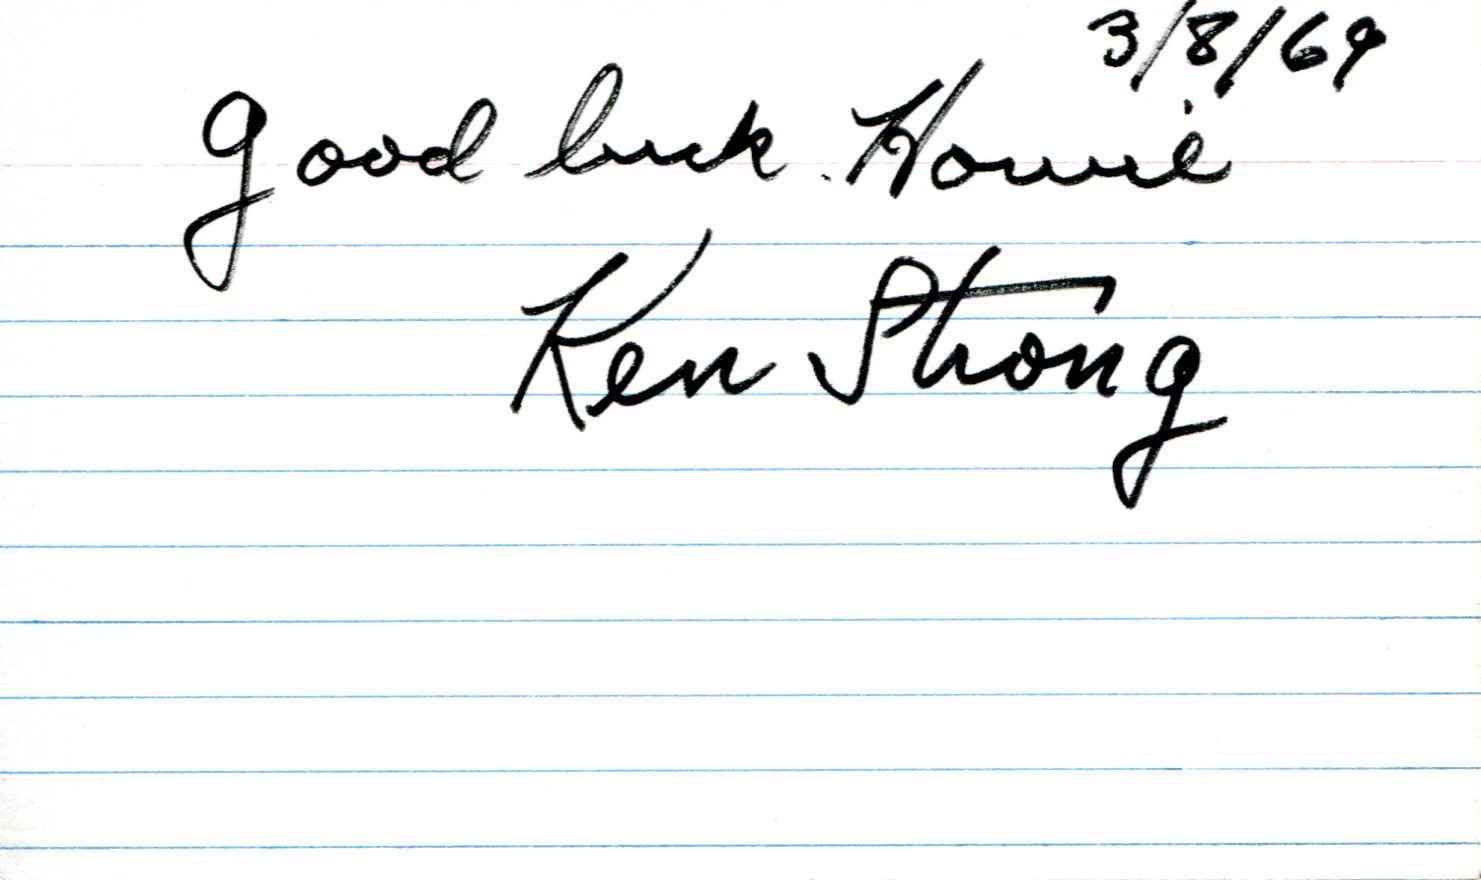 3/8/69
Good luck Howie
Ken Strong